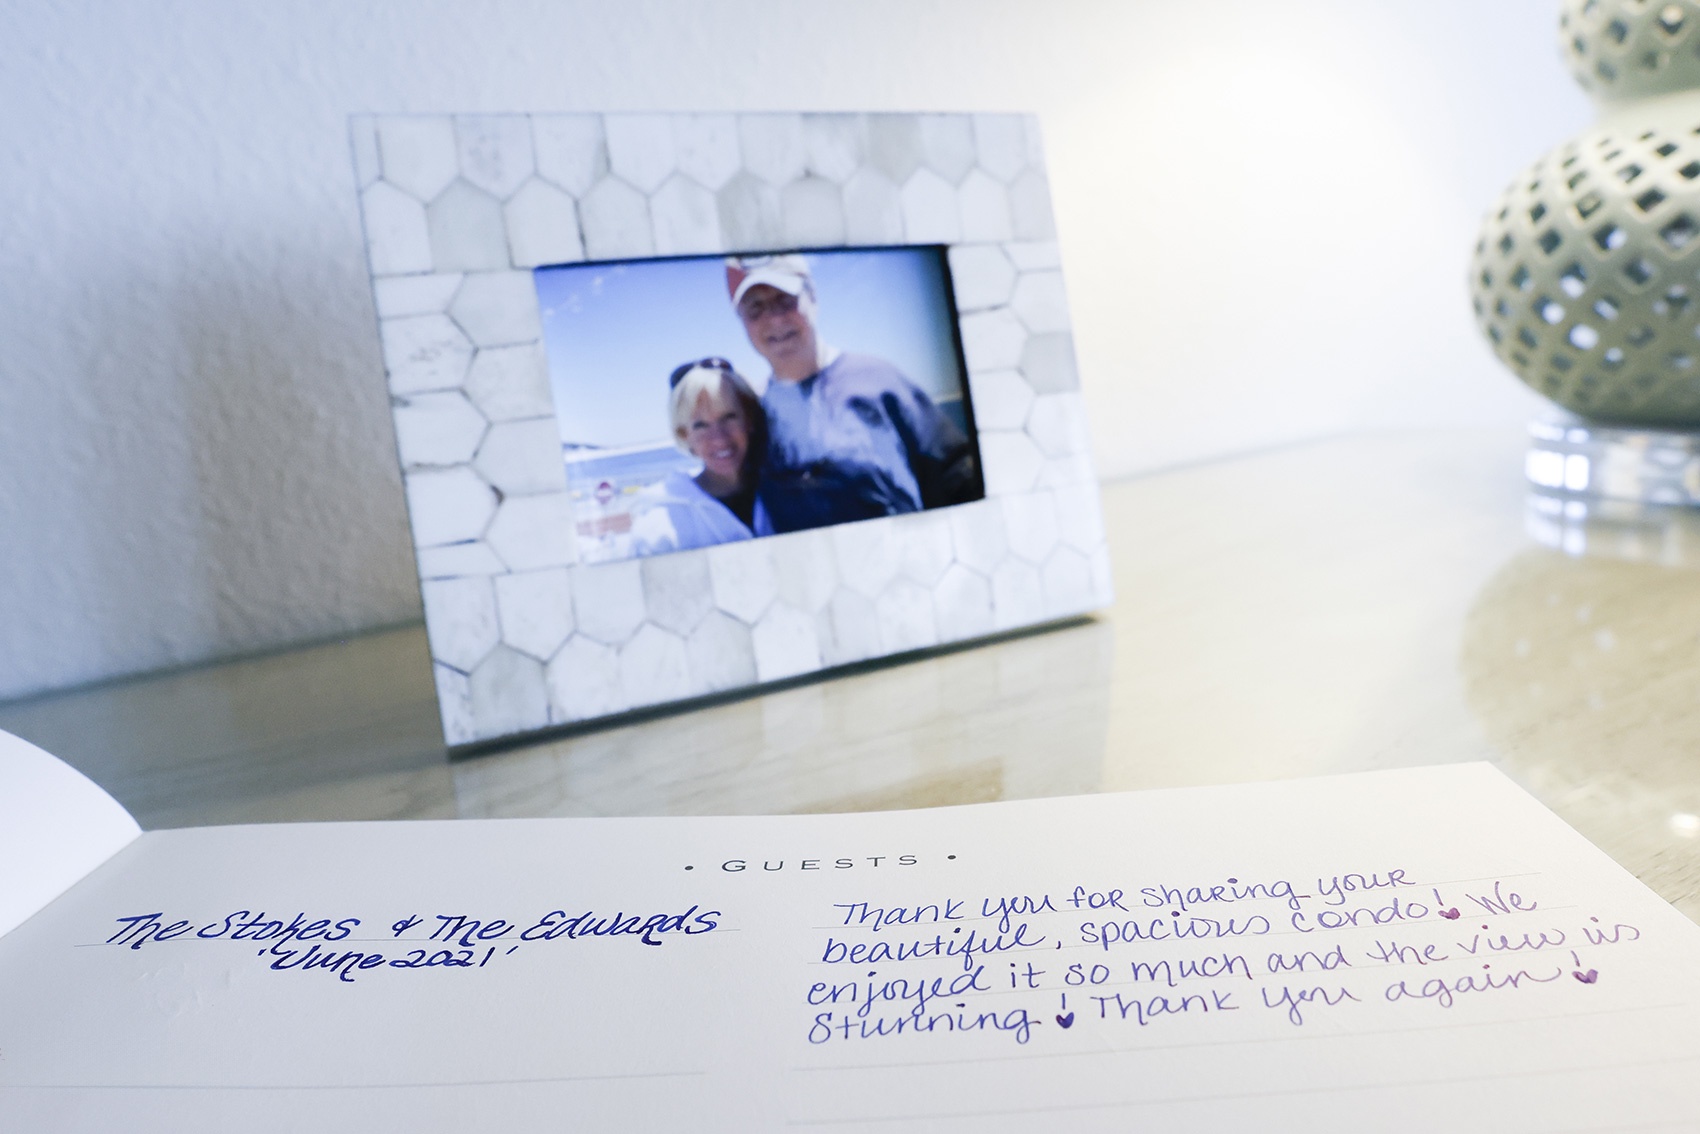 • GUESTS •
The Stokes & The Edwards
'June 2021'
Thank you for sharing your
beautiful, spacious condo! We
enjoyed it so much and the view is
stunning! Thank you again!